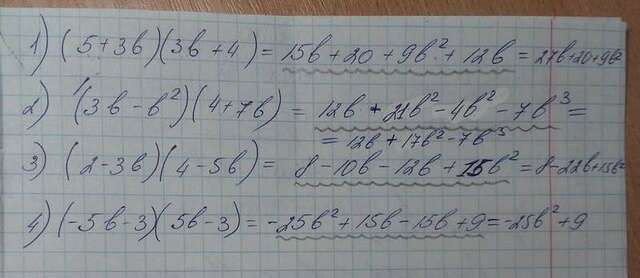 1) (5+3b)(3b+4) = 15b+20+9b²+12b = 27b+20+9b²
2) (3b-b²)(4+7b) = 12b+21b²-4b²-7b³ =
= 12b+17b²-7b³
3) (2-3b)(4-5b) = 8-10b-12b+15b² = 8-22b+15b²
4) (-5b-3)(5b-3) = -25b²+15b-15b+9 = -25b²+9